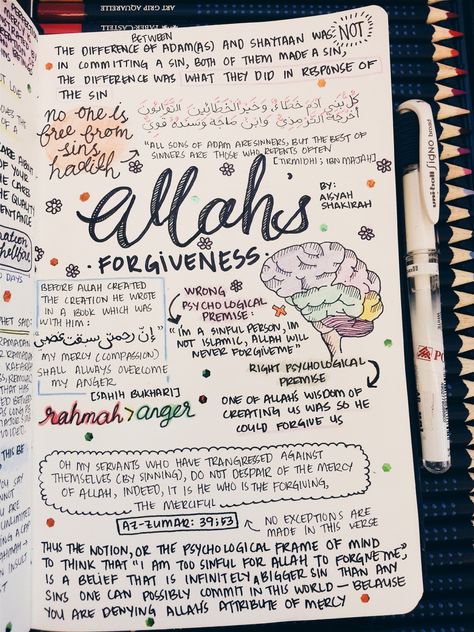 THE DIFFERENCE BETWEEN OF ADAM(AS) AND SHAYTAAN WAS NOT
IN COMMITTING A SIN, BOTH OF THEM MADE A SIN,
THE DIFFERENCE WAS WHAT THEY DID IN RESPONSE OF
THE SIN
no one is
free from
sins,
hadith
كل بني آدم خطاء، وخير الخطائين التوابون
أخرجه الترمذي وابن ماجه وسنده قوي
"ALL SONS OF ADAM ARE SINNERS, BUT THE BEST OF
SINNERS ARE THOSE WHO REPENTS OFTEN
[TIRMIDHI & IBN MAJAH]
Allah's
FORGIVENESS
BY:
AISYAH
SHAKIRAH
BEFORE ALLAH CREATED
THE CREATION HE WROTE
IN A BOOK WHICH WAS
WITH HIM:
"إن رحمتي سبقت غضبي"
MY MERCY (COMPASSION)
SHALL ALWAYS OVERCOME
MY ANGER
[SAHIH BUKHARI]
rahmah > anger
WRONG
PSYCHOLOGICAL
PREMISE:
"I'M A SINFUL PERSON, IM
NOT ISLAMIC, ALLAH WILL
NEVER FORGIVE ME"
RIGHT PSYCHOLOGICAL
PREMISE
ONE OF ALLAH'S WISDOM OF
CREATING US WAS SO HE
COULD FORGIVE US
OH MY SERVANTS WHO HAVE TRANGRESSED AGAINST
THEMSELVES (BY SINNING), DO NOT DESPAIR OF THE MERCY
OF ALLAH, INDEED, IT IS HE WHO IS THE FORGIVING,
THE MERCIFUL
AZ-ZUMAR: 39:53
NO EXCEPTIONS ARE
MADE IN THIS VERSE
THUS THE NOTION, OR THE PSYCHOLOGICAL FRAME OF MIND
TO THINK THAT "I AM TOO SINFUL FOR ALLAH TO FORGIVE ME",
IS A BELIEF THAT IS INFINITELY A BIGGER SIN THAN ANY
SINS ONE CAN POSSIBLY COMMIT IN THIS WORLD — BECAUSE
YOU ARE DENYING ALLAH'S ATTRIBUTE OF MERCY
uni-ball
SIGNO
broad
ART GRIP AQUARELLE
FABER-CASTELL